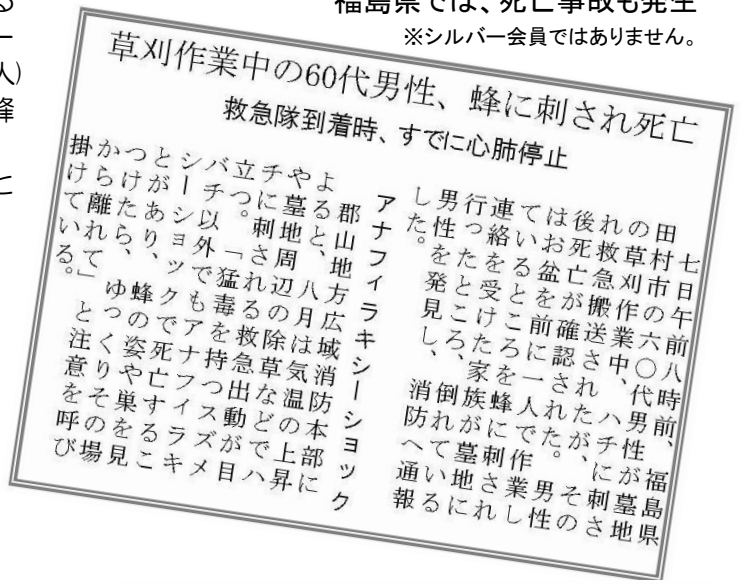 福島県では、死亡事故も発生
※シルバー会員ではありません。
草刈作業中の60代男性、蜂に刺され死亡
救急隊到着時、すでに心肺停止
七日午前八時前、福島県
田村市の六〇代男性が墓地
の草刈作業中、ハチに刺さ
れ救急搬送されたが、その
後死亡が確認された。男性
はお盆を前に一人で作業し
ているところを蜂に刺され
連絡を受けた家族が墓地に
行ったところ、倒れている
男性を発見し、消防へ通報
した。
アナフィラキシーショック
郡山地方広域消防本部に
よると、八月は気温の上昇
や墓地周辺の除草などでハ
チに刺される救急出動が目
立つ。「猛毒を持つスズメ
バチ以外でもアナフィラキ
シーショックで死亡するこ
とがあり、蜂の姿や巣を見
つけたら、ゆっくりその場
から離れて」と注意を呼び
掛けている。
人)